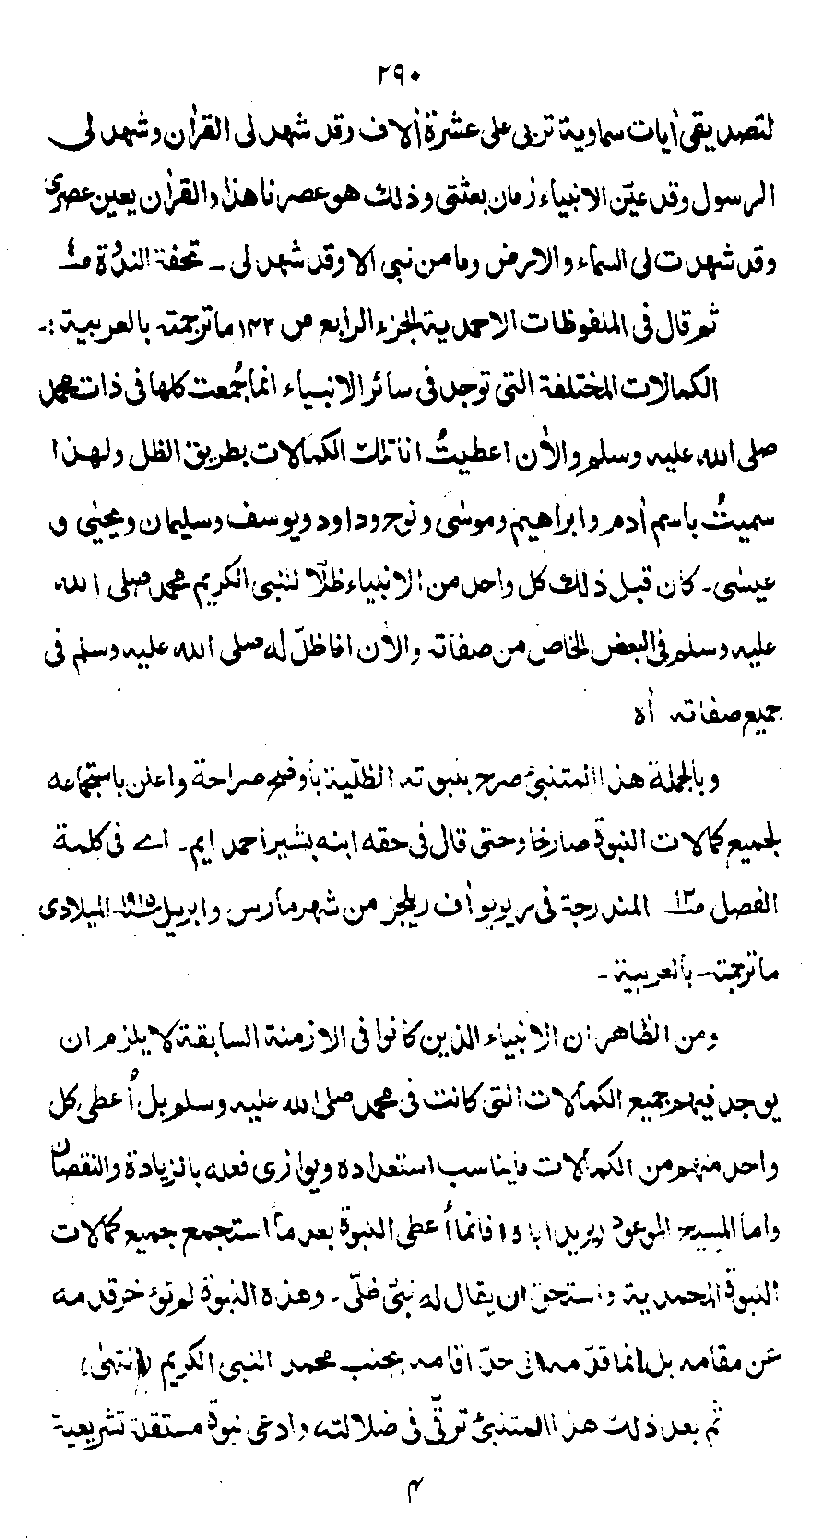 ٢٩٠
لتصديقي أيات سماوية تربى على عشرة ألاف وقد شهد لى القرأن وشهد لى
الرسول وقد عيّن الانبياء زمان بعثتى وذلك هو عصرنا هذا والقرأن يعين عصرى
وقد شهدت لى السماء والارض وما من نبى الا وقد شهد لى ـ تحفة الندوة
ثم قال فى الملفوظات الاحمدية الجزء الرابع ص ١٤٢ ما ترجمته بالعربية :ـ
الكمالات المختلفة التى توجد فى سائر الانبياء انما جُمعت كلها فى ذات محمد
صلى الله عليه وسلم والأن اعطيتُ انا تلك الكمالات بطريق الظل ولهذا
سميتُ باسم أدم وابراهيم وموسٰى ونوح وداود ويوسف وسليمان ويحيٰى و
عيسٰى ـ كان قبل ذلك كل واحد من الانبياء ظلّا للنبى الكريم محمد صلى الله
عليه وسلم فى البعض الخاص من صفاته والأن انا ظلّ له صلى الله عليه وسلم فى
جميع صفاته أه
وبالجملة هذا المتنبئ صرح بنبوته الظلّية بأوضح صراحة واعلن باستجماعه
لجميع كمالات النبوة صارخا وحتى قال فى حقه ابنه بشير احمد ايم ـ اے فى كلمة
الفصل ص١٣ المندرجة فى ريويو أف ريلجنز من شهر مأرس وابريل ١٩١٥ الميلادى
ما ترجمته ـ بالعربية ـ
ومن الظاهر ان الانبياء الذين كانوا فى الازمنة السابقة لا يلزم ان
يوجد فيهم جميع الكمالات التى كانت فى محمد صلى الله عليه وسلم بل أُعطى كل
واحد منهم من الكمالات ما يناسب استعداده ويوازى فعله بالزيادة والنقصان
واما المسيح الموعود (يريد اباه) فانما أُعطى النبوة بعد ما استجمع جميع كمالات
النبوة المحمدية واستحق ان يقال له نبىّ ظلّى ـ وهذه النبوة لم تؤخر قدمه
عن مقامه بل انما قدّمه الى حدّ اقامه بجنب محمد النبى الكريم (انتهٰى)
ثم بعد ذلك هذا المتنبئ ترقّى فى ضلالته وادعى نبوة مستقلة تشريعية
م